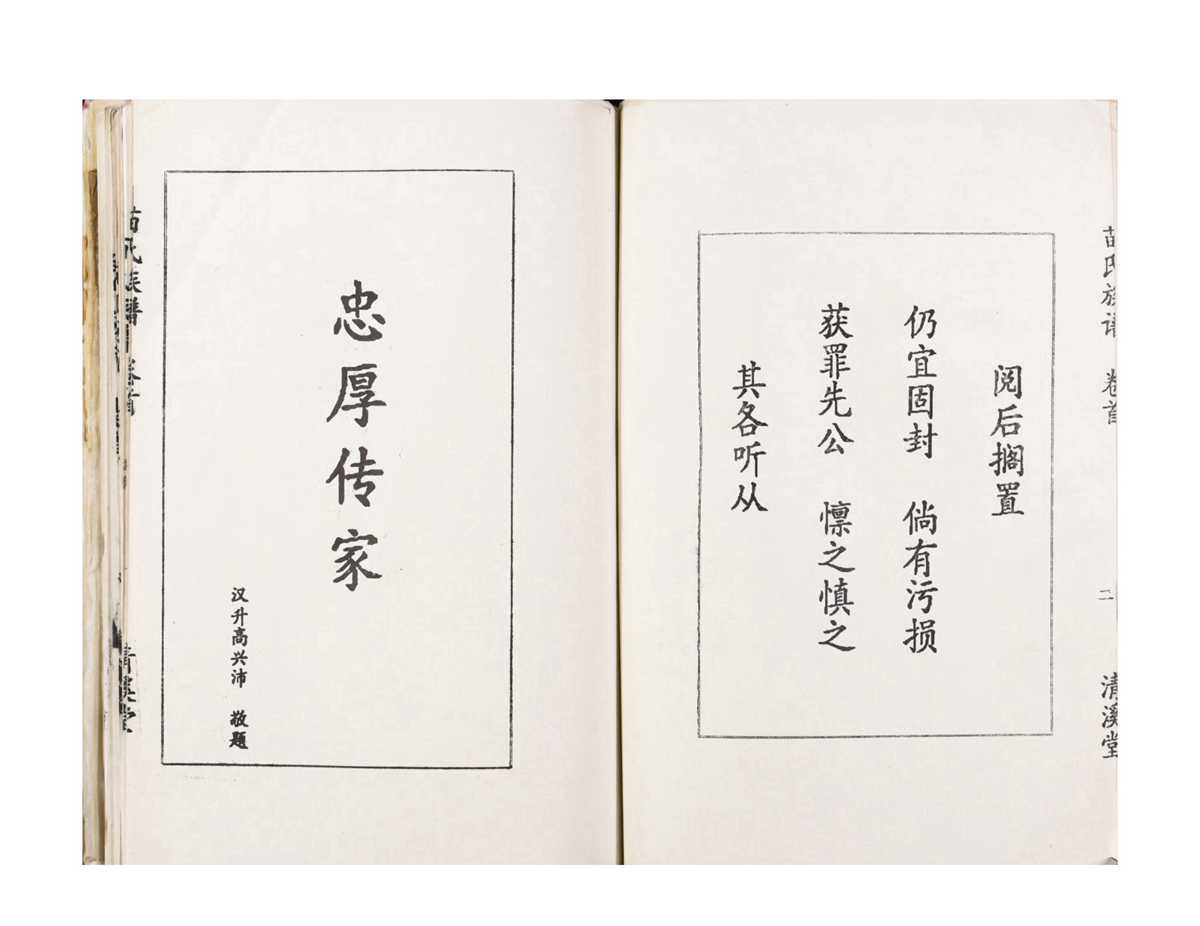 苗氏族谱 卷首 二 清溪堂
阅后搁置
仍宜固封 倘有污损
获罪先公 懔之慎之
其各听从
忠厚传家
汉升高兴沛 敬题
苗氏族谱 卷首 清溪堂